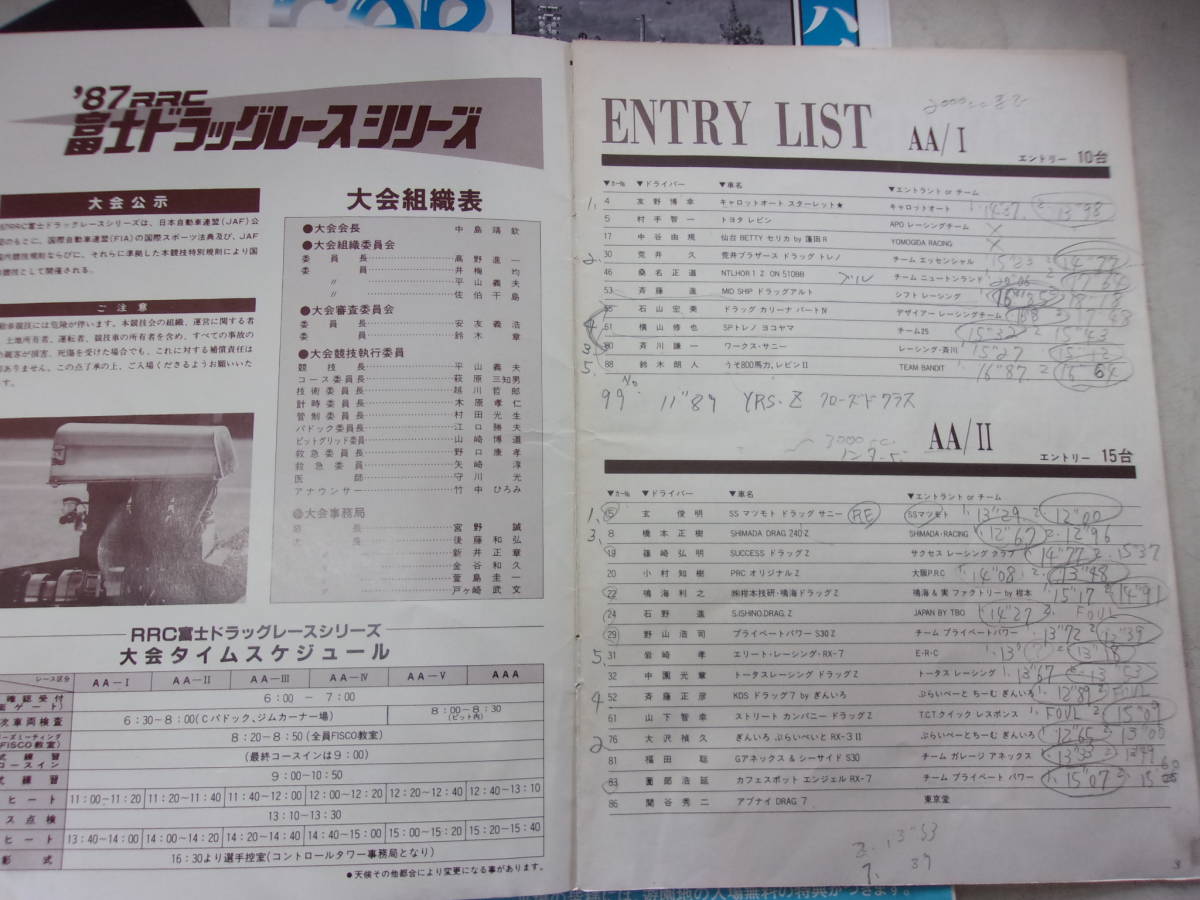 '87 RRC
富士ドラッグレースシリーズ
大会公示
'87RRC富士ドラッグレースシリーズは、日本自動車連盟(JAF)公
認のもとに、国際自動車連盟(FIA)の国際スポーツ法典及び、JAF
国内競技規則ならびに、それらに準拠した本競技特別規則により国
内競技として開催される。
ご注意
自動車競技には危険が伴います。本競技会の組織、運営に関する者
、土地所有者、運転者、競技車の所有者を含め、すべての事故の
観客が損害、死傷を受けた場合でも、これに対する補償責任は
ありません。この点了承の上、ご入場くださるようお願いいた
ます。
大会組織表
●大会会長 中島靖欽
●大会組織委員会
委員長 高野進一
委員 井梅均
〃 平山義夫
〃 佐伯千島
●大会審査委員会
委員長 安友義浩
委員 鈴木章
●大会競技執行委員
競技長 平山義夫
コース委員長 萩原三知男
技術委員長 越川哲郎
計時委員長 木原孝仁
管制委員長 村田光生
パドック委員長 江口勝夫
ピットグリッド委員 山崎博道
救急委員長 野口康孝
救急委員 矢崎淳
医師 守川光
アナウンサー 竹中ひろみ
●大会事務局
宮野誠
後藤和弘
新井正章
金谷和久
萱島圭一
戸ヶ崎武文
RRC富士ドラッグレースシリーズ
大会タイムスケジュール
レース区分 AA-I AA-II AA-III AA-IV AA-V AAA
確認受付 6:00 - 7:00
次車両検査 6:30~8:00(Cパドック、ジムカーナー場) 8:00~8:30 (ピット内)
(FISCO教室) 8:20~8:50(全員FISCO教室)
コースイン (最終コースインは9:00)
式練習 9:00~10:50
ヒート 11:00~11:20 11:20~11:40 11:40~12:00 12:00~12:20 12:20~12:40 12:40~13:10
ス点検 13:10~13:30
ヒート 13:40~14:00 14:00~14:20 14:20~14:40 14:40~15:00 15:00~15:20 15:20~15:40
彰式 16:30より選手控室(コントロールタワー事務局となり)
●天候その他都合により変更になる事があります。
ENTRY LIST AA/I
エントリー 10台
▼カーNo. ▼ドライバー ▼車名 ▼エントラント or チーム
1. 4 友野博幸 キャロットオート スターレット★ キャロットオート 1. 14"37 2. 13"98
5 村手智一 トヨタ レビン APO レーシングチーム ×
17 中谷由規 仙台BETTY セリカ by 蓬田R YOMOGIDA RACING ×
2. 30 荒井久 荒井ブラザース ドラッグ トレノ チーム エッセンシャル 15"23 14"77
46 桑名正道 NTLHOR 1 2 ON 510BB ブル チーム ニュートンランド 17"64
53 斉藤進 MID SHIP ドラッグアルト シフト レーシング 18"18
石山宏美 ドラッグ カリーナ バートN デザイアー レーシングチーム 17"48
4 61 横山修也 SPトレノ ヨコヤマ チーム25 15"22 15"43
3. 80 斉川謙一 ワークス・サニー レーシング・斉川 15"27 15"12
5. 88 鈴木朗人 うそ800馬力、レビンII TEAM BANDIT 16"87 2. 15"64
No 99 11"89 YRS・Z クローズドクラス
~3000cc
AA/II
エントリー 15台
▼カーNo. ▼ドライバー ▼車名 ▼エントラント or チーム
1. 5 玄俊明 SS マツモト ドラッグ サニー RE SSマツモト 1. 13"29 2. 12"00
3. 8 橋本正樹 SHIMADA DRAG 240Z SHIMADA・RACING 1. 12"67 2. 12"96
19 篠崎弘明 SUCCESS ドラッグZ サクセス レーシング クラブ 1. 14"77 2. 15"37
20 小村知樹 PRC オリジナルZ 大阪P.R.C 1. 14"08 2. 13"48
22 鳴海利之 ㈱柑本技研・鳴海ドラッグZ 鳴海&実 ファクトリー by 柑本 15"17 2. 14"91
24 石野進 S.ISHINO.DRAG.Z JAPAN BY TBO 1. 14"27 2. FOUL
29 野山浩司 プライベートパワー S30Z チーム プライベートパワー 1. 13"72 2. 13"39
5. 31 岩崎孝 エリート・レーシング・RX-7 E・R・C 13"18
32 中園光章 トータスレーシング ドラッグZ トータス レーシング 13"67 13"53
4 52 斉藤正彦 KDS ドラッグ7 by ぎんいろ ぷらいべーと ちーむ ぎんいろ 1. 12"89 FOUL
61 山下智幸 ストリート カンパニー ドラッグZ T.C.Tクイック レスポンス 1. FOUL 2. 15"09
2 76 大沢禎久 ぎんいろ ぷらいべいと RX-3II ぷらいべーとちーむぎんいろ 1. 12"65 13"00
81 福田聡 Gアネックス & シーサイド S30 チーム ガレージ アネックス 1. 13"33
83 薗部浩延 カフェスポット エンジェル RX-7 チーム プライベート パワー 1. 15"07 2.
86 関谷秀二 アブナイ DRAG 7 東京堂
2. 13"53
39
3